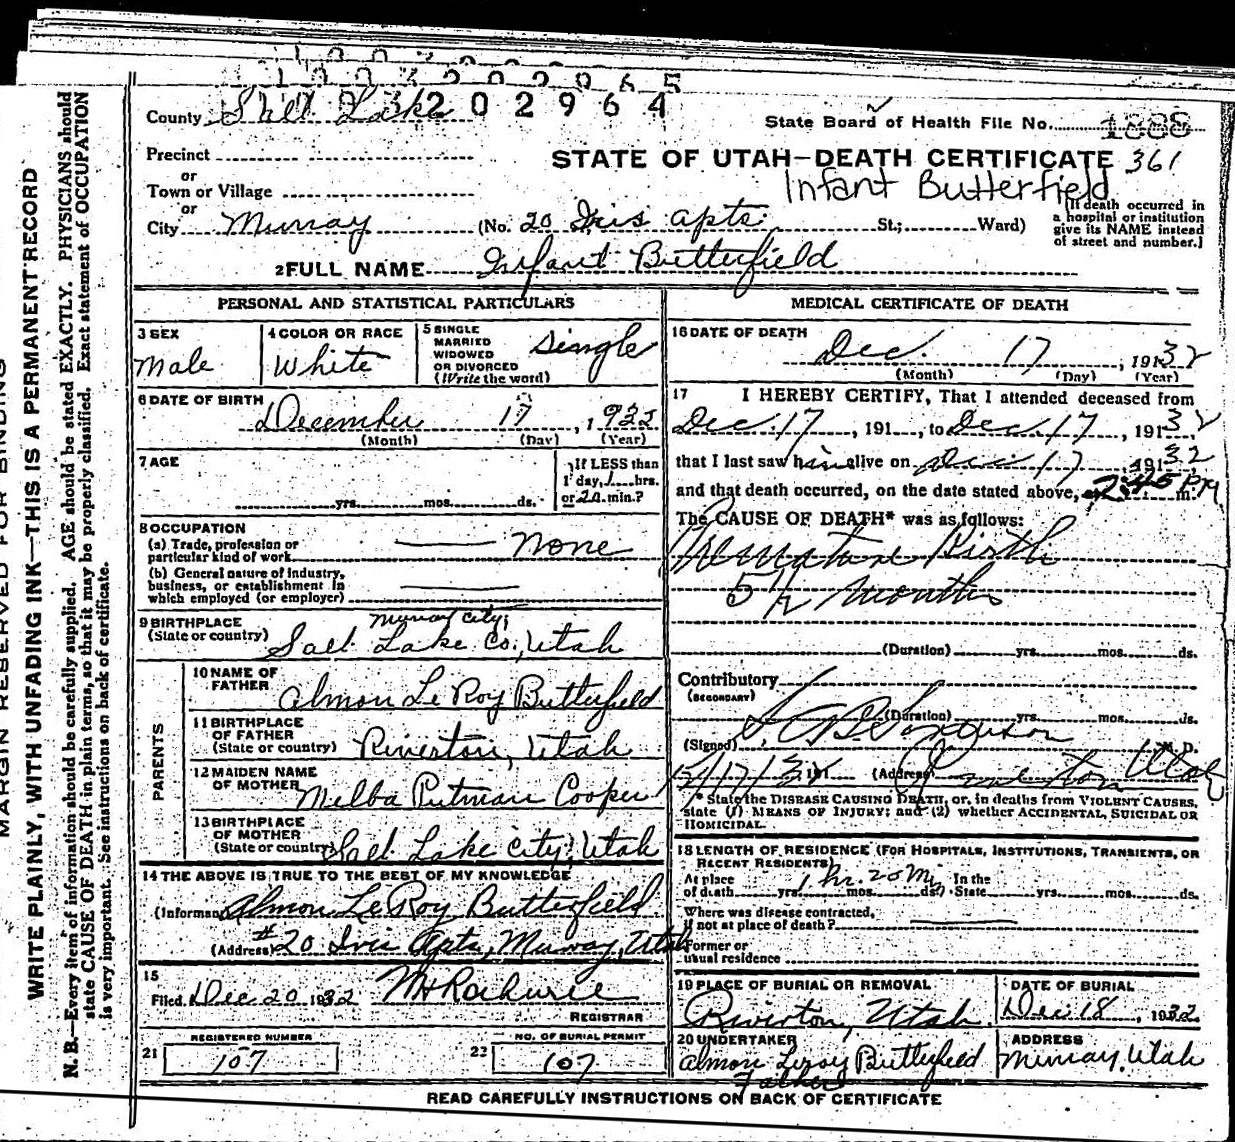 1003202965
1003202964
County Salt Lake
State Board of Health File No. 1888
Precinct
or
Town or Village
or
City Murray
STATE OF UTAH—DEATH CERTIFICATE 361
Infant Butterfield
(No. 20 Iris apts. St.; Ward)
[If death occurred in
a hospital or institution
give its NAME instead
of street and number.]
2 FULL NAME Infant Butterfield
PERSONAL AND STATISTICAL PARTICULARS
3 SEX
Male
4 COLOR OR RACE
White
5 SINGLE
MARRIED
WIDOWED
OR DIVORCED
(Write the word)
Single
6 DATE OF BIRTH
December 17, 1932
(Month) (Day) (Year)
7 AGE
yrs. mos. ds.
If LESS than
1 day, 1 hrs.
or 20 min.?
8 OCCUPATION
(a) Trade, profession or
particular kind of work None
(b) General nature of industry,
business, or establishment in
which employed (or employer)
9 BIRTHPLACE
(State or country)
Murray City,
Salt Lake Co., Utah
PARENTS
10 NAME OF
FATHER Almon LeRoy Butterfield
11 BIRTHPLACE
OF FATHER
(State or country) Riverton, Utah
12 MAIDEN NAME
OF MOTHER Melba Putman Cooper
13 BIRTHPLACE
OF MOTHER
(State or country) Salt Lake City, Utah
14 THE ABOVE IS TRUE TO THE BEST OF MY KNOWLEDGE
(Informant) Almon LeRoy Butterfield
(Address) #20 Iris Apts, Murray, Utah
15
Filed Dec 20 1932
REGISTRAR
REGISTERED NUMBER
21 107
NO. OF BURIAL PERMIT
22 107
MEDICAL CERTIFICATE OF DEATH
16 DATE OF DEATH
Dec. 17, 1932
(Month) (Day) (Year)
17 I HEREBY CERTIFY, That I attended deceased from
Dec. 17, 191, to Dec. 17, 1932,
that I last saw him alive on Dec 17, 1932,
and that death occurred, on the date stated above, 2:45 PM m.
The CAUSE OF DEATH* was as follows:
Premature Birth
5 1/2 months
(Duration) yrs. mos. ds.
Contributory
(SECONDARY)
(Duration) yrs. mos. ds.
(Signed) M. D.
12/17/32 191 (Address) Utah
* State the DISEASE CAUSING DEATH, or, in deaths from VIOLENT CAUSES,
state (1) MEANS OF INJURY; and (2) whether ACCIDENTAL, SUICIDAL OR
HOMICIDAL.
18 LENGTH OF RESIDENCE (FOR HOSPITALS, INSTITUTIONS, TRANSIENTS, OR
RECENT RESIDENTS)
At place 1 hr. 20 Min In the
of death yrs. mos. ds. State yrs. mos. ds.
Where was disease contracted,
if not at place of death?
Former or
usual residence
19 PLACE OF BURIAL OR REMOVAL
Riverton, Utah
DATE OF BURIAL
Dec 18, 1932
20 UNDERTAKER
Almon Leroy Butterfield
Father
ADDRESS
Murray, Utah
READ CAREFULLY INSTRUCTIONS ON BACK OF CERTIFICATE
MARGIN RESERVED FOR BINDING
WRITE PLAINLY, WITH UNFADING INK—THIS IS A PERMANENT RECORD
N. B.—Every item of information should be carefully supplied. AGE should be stated EXACTLY. PHYSICIANS should
state CAUSE OF DEATH in plain terms, so that it may be properly classified. Exact statement of OCCUPATION
is very important. See instructions on back of certificate.